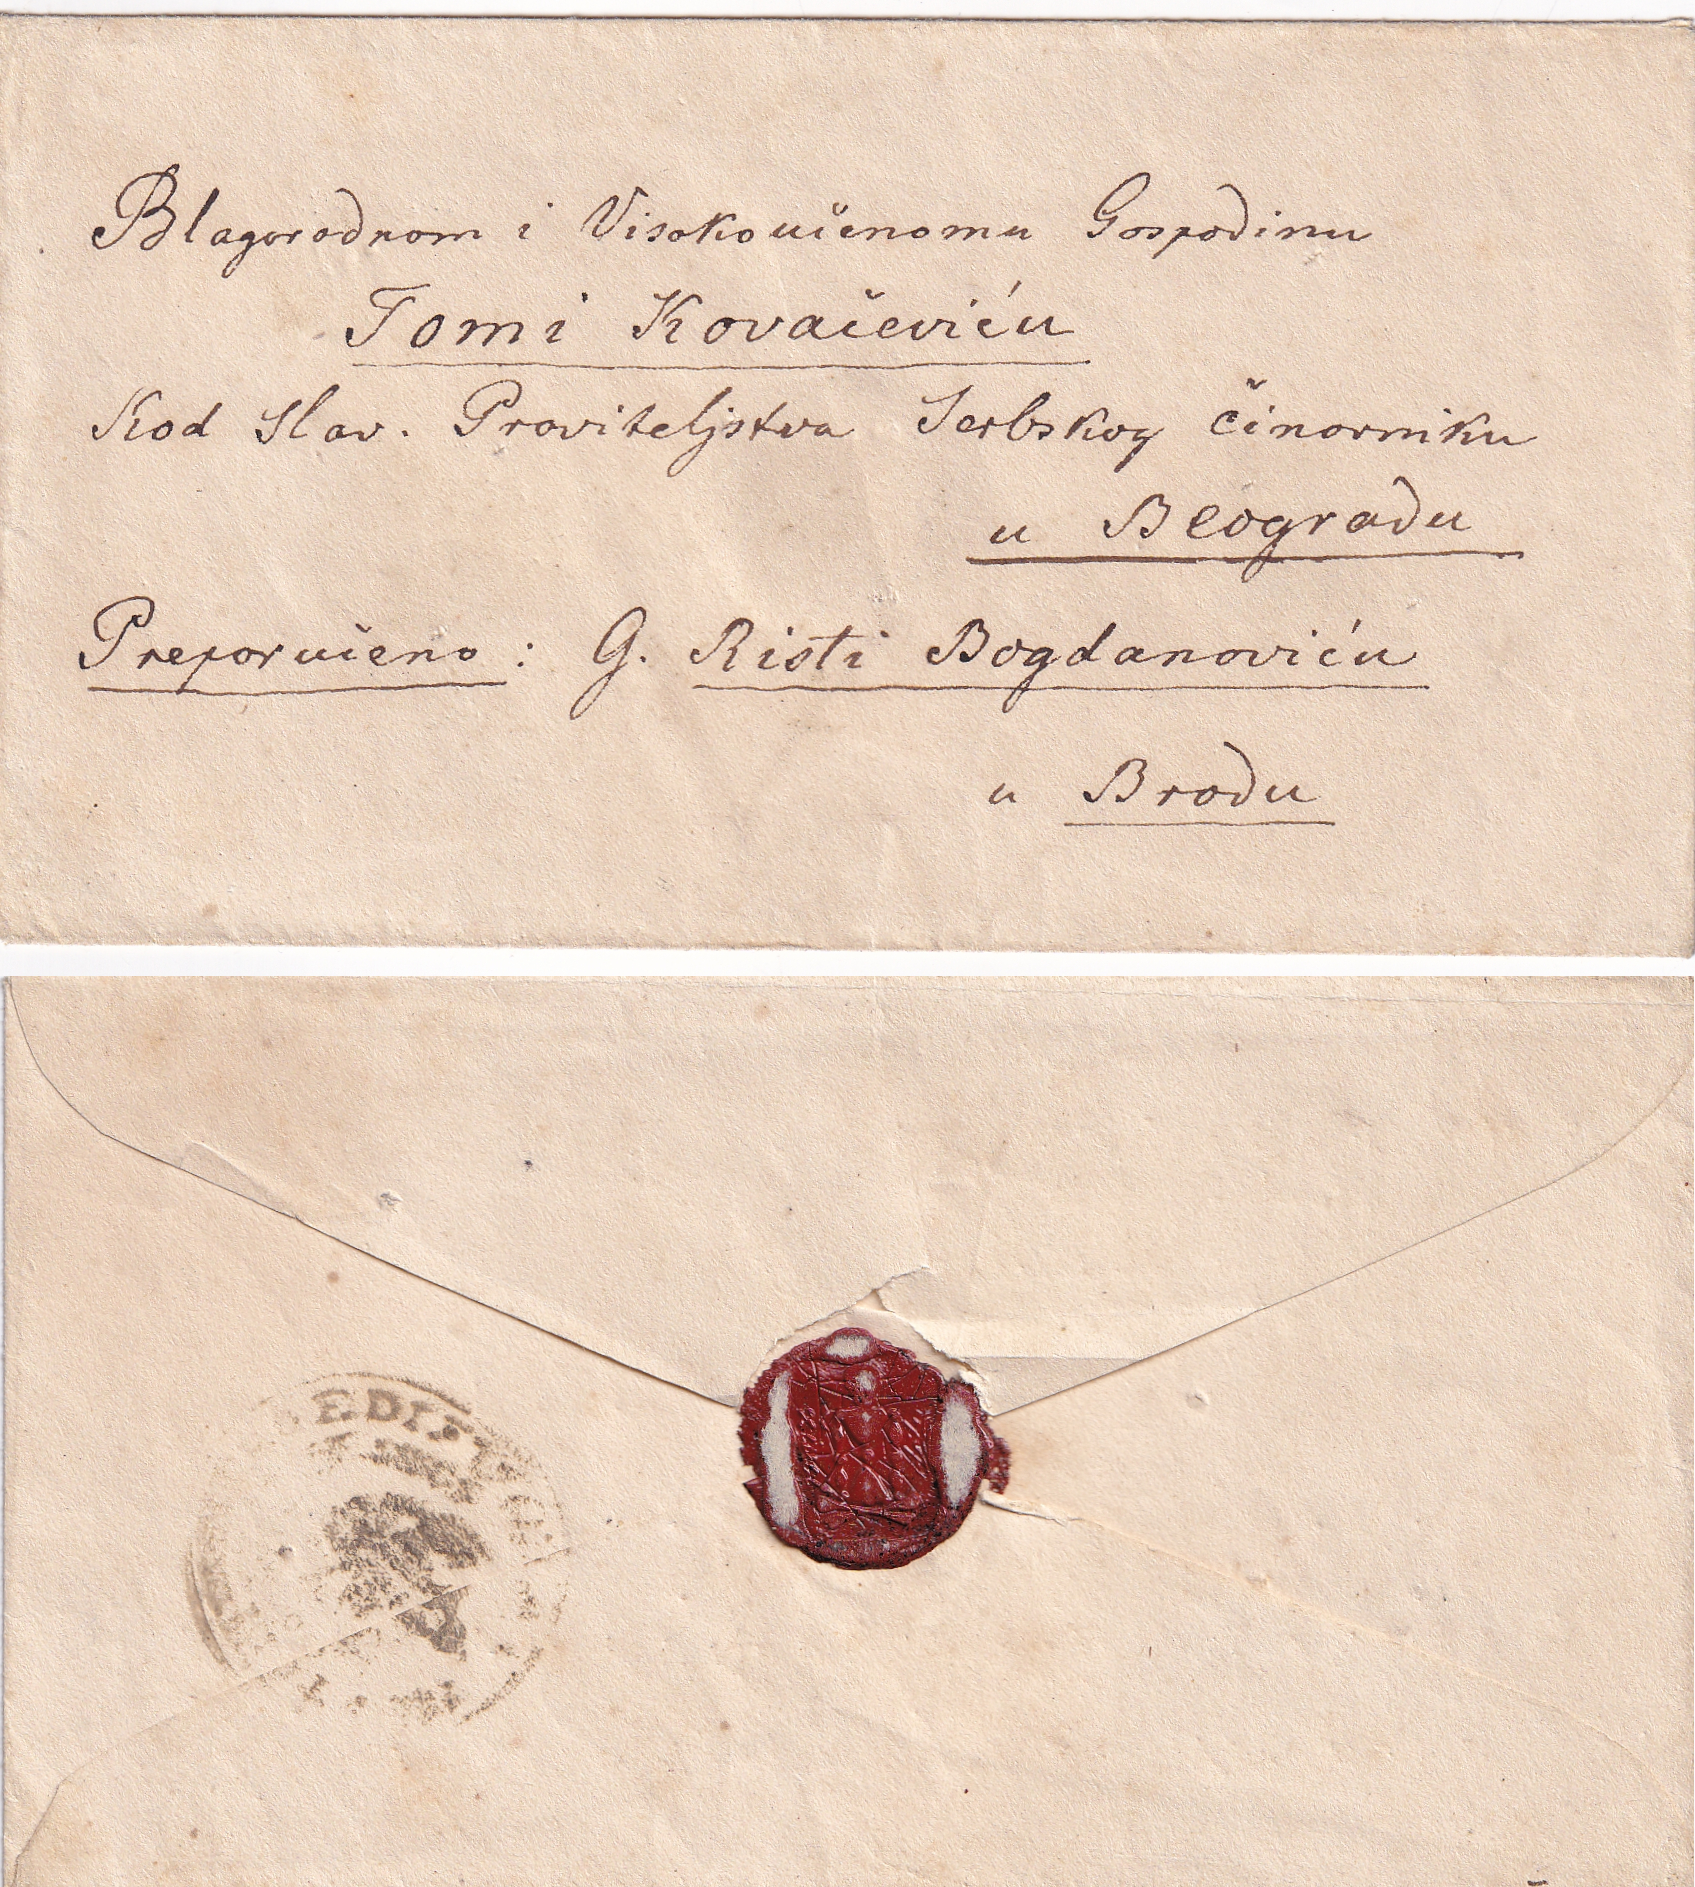 Blagorodnom i Visokoučenomu Gospodinu
Tomi Kovačeviću
Kod Slav. Praviteljstva Serbskog činovniku
u Beogradu
Preporučeno: G. Risti Bogdanoviću
u Brodu